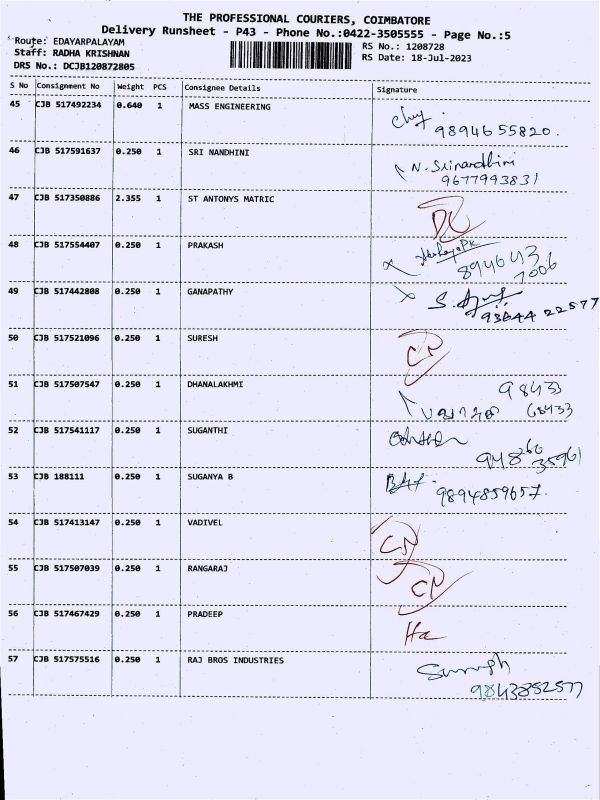 THE PROFESSIONAL COURIERS, COIMBATORE
Delivery Runsheet - P43 - Phone No.:0422-3505555 - Page No.:5
Route: EDAYARPALAYAM
Staff: RADHA KRISHNAN
DRS No.: DCJB120872805
RS No.: 1208728
RS Date: 18-Jul-2023
S No Consignment No Weight PCS Consignee Details Signature
45 CJB 517492234 0.640 1 MASS ENGINEERING
9894655820.
46 CJB 517591637 0.250 1 SRI NANDHINI
N. Srinandhini
9677993831
47 CJB 517350886 2.355 1 ST ANTONYS MATRIC
DL
48 CJB 517554407 0.250 1 PRAKASH
894643
7006
49 CJB 517442808 0.250 1 GANAPATHY
93644 22577
50 CJB 517521096 0.250 1 SURESH
CN
51 CJB 517507547 0.250 1 DHANALAKHMI
98433
68433
52 CJB 517541117 0.250 1 SUGANTHI
53 CJB 188111 0.250 1 SUGANYA B
9894859657.
54 CJB 517413147 0.250 1 VADIVEL
CN
55 CJB 517507039 0.250 1 RANGARAJ
CN
56 CJB 517467429 0.250 1 PRADEEP
57 CJB 517575516 0.250 1 RAJ BROS INDUSTRIES
9843852577